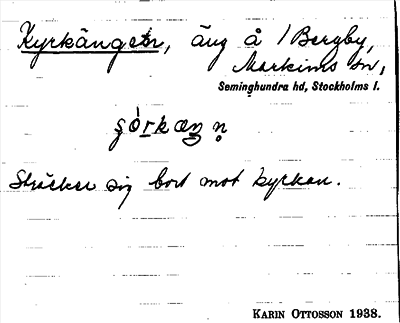 Kyrkängen, äng å 1 Bergby,
Markims sn,
Seminghundra hd, Stockholms l.
Sträcker sig bort mot kyrkan.
KARIN OTTOSSON 1938.